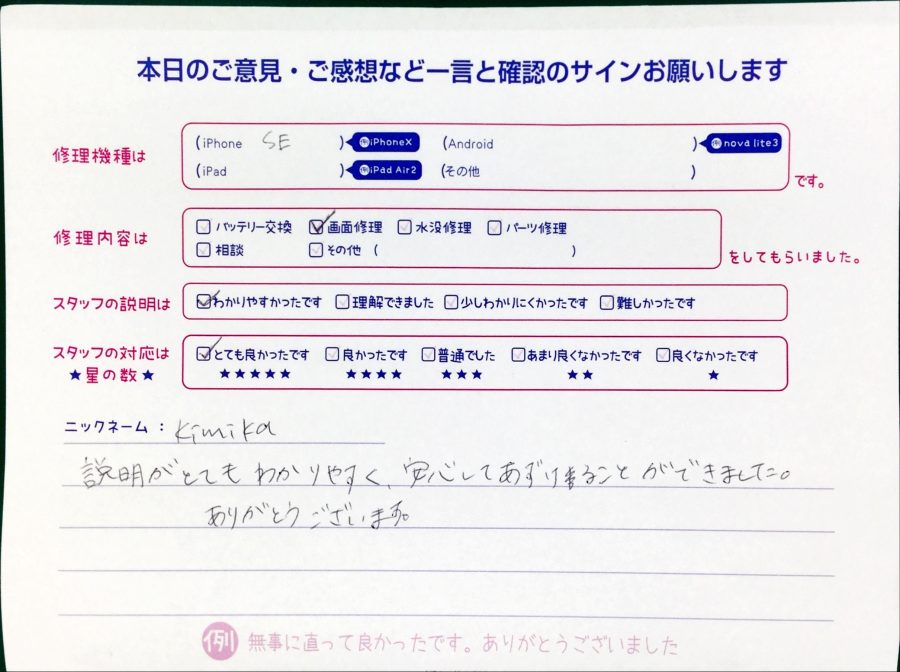 本日のご意見・ご感想など一言と確認のサインお願いします
修理機種は
(iPhone SE ) 例iPhoneX (Android ) 例nova lite3
(iPad ) 例iPad Air2 (その他 )
です。
修理内容は
バッテリー交換 画面修理 水没修理 パーツ修理
相談 その他 ( )
をしてもらいました。
スタッフの説明は わかりやすかったです 理解できました 少しわかりにくかったです 難しかったです
スタッフの対応は とても良かったです 良かったです 普通でした あまり良くなかったです 良くなかったです
★星の数★ ★★★★★ ★★★★ ★★★ ★★ ★
ニックネーム : kimika
説明がとてもわかりやすく、安心してあずけることができました。
ありがとうございます。
例 無事に直って良かったです。ありがとうございました